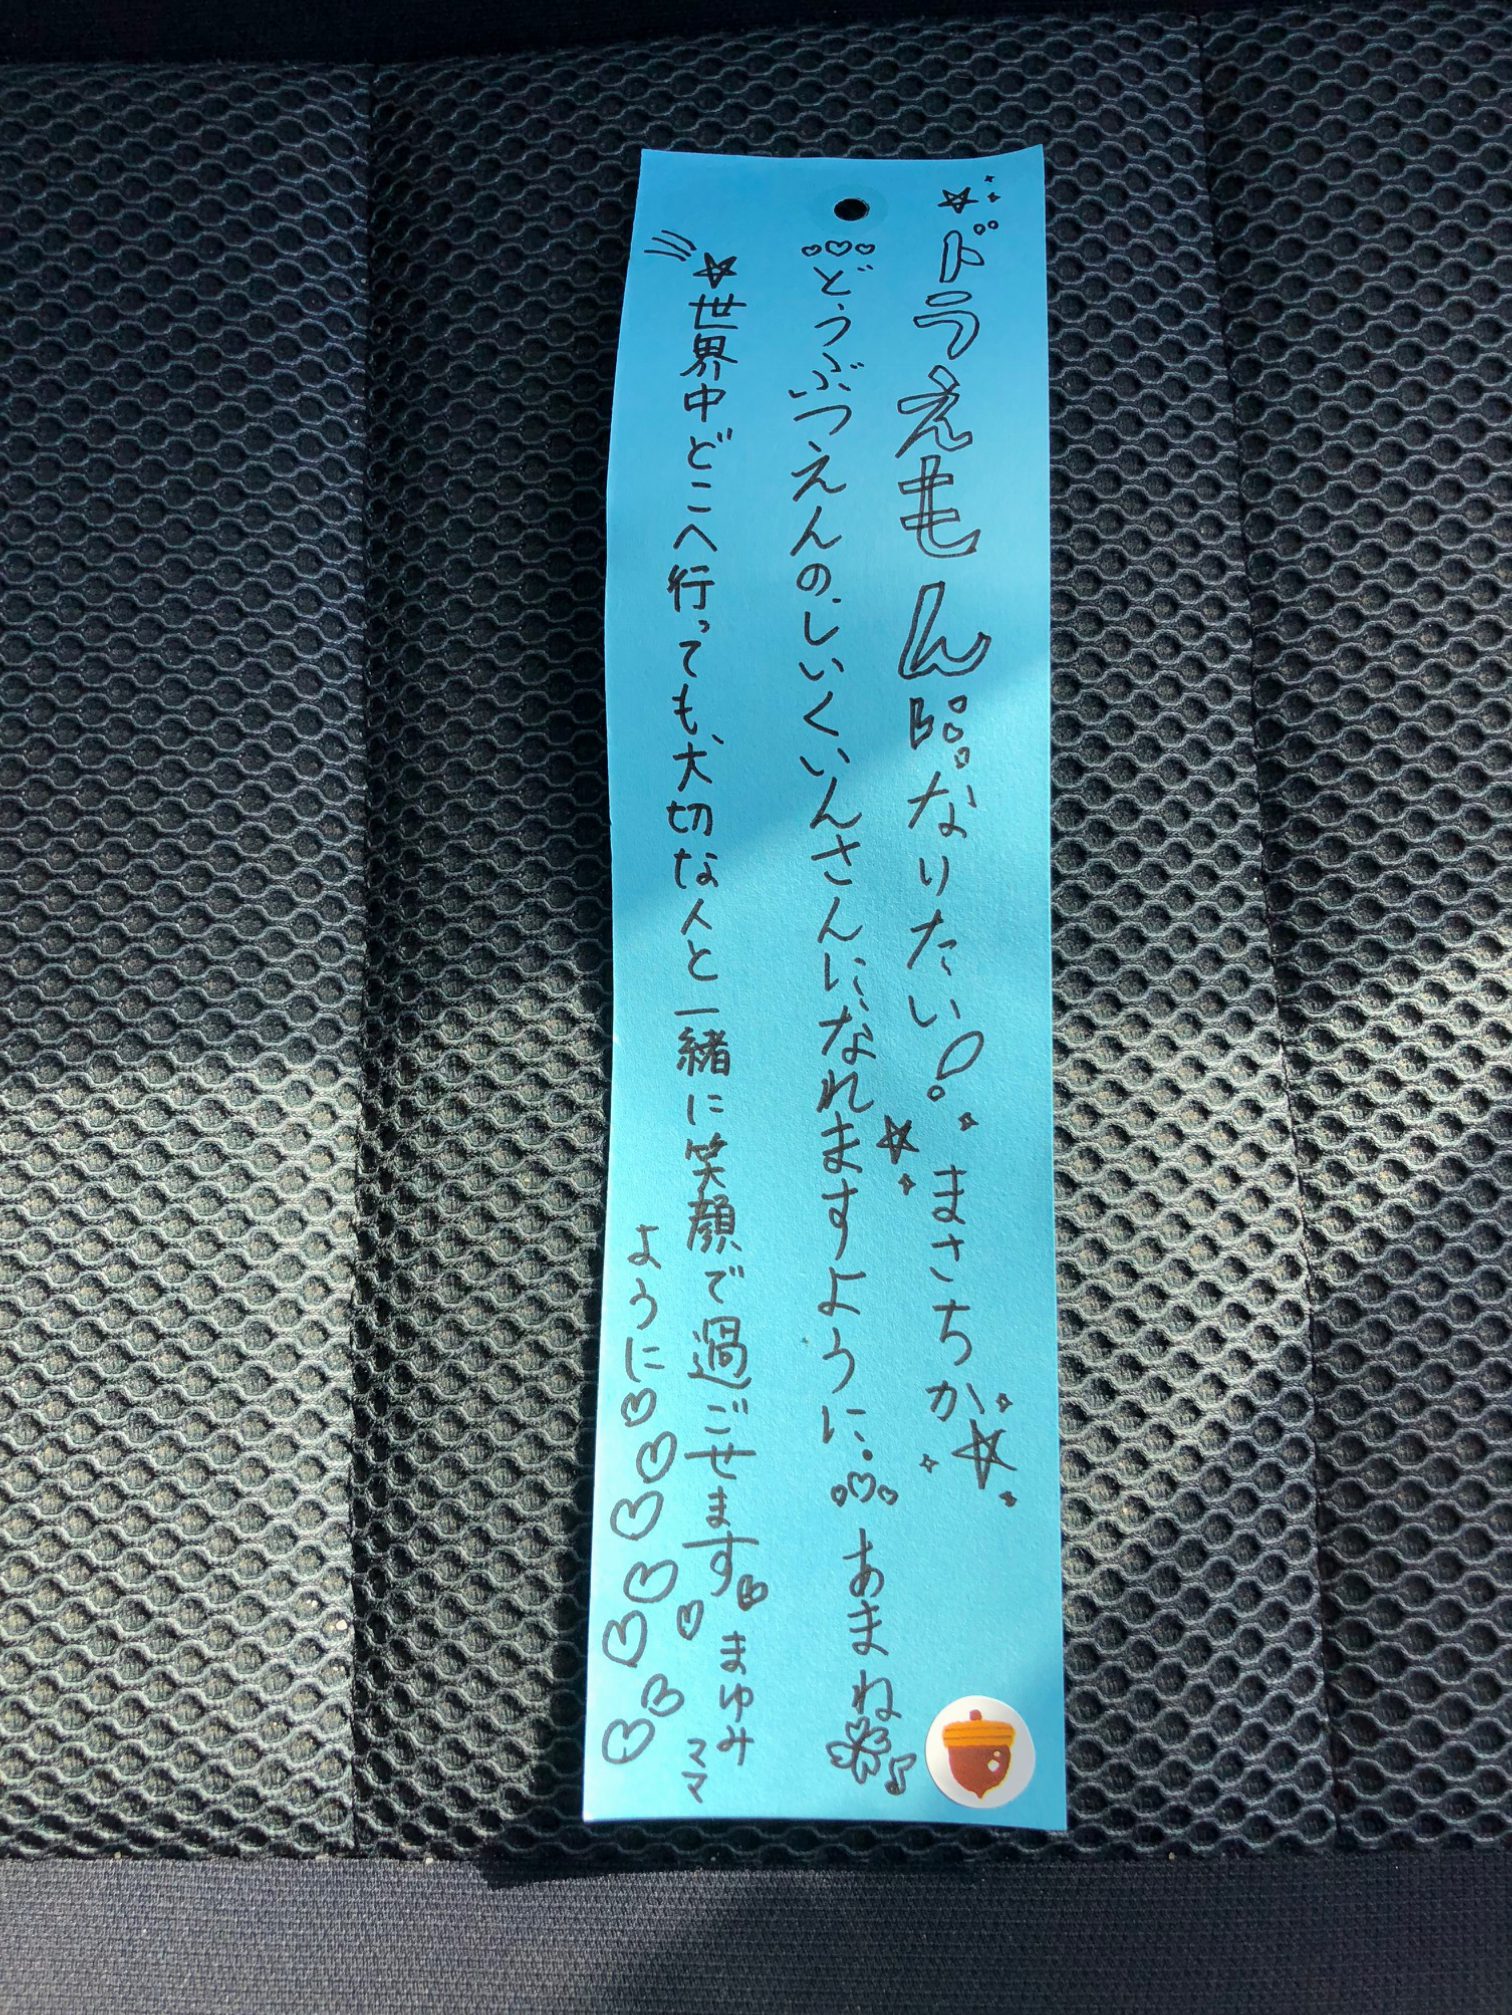 ドラえもんになりたい! まさちか
どうぶつえんのしいくいんさんになれますように。 あまね
世界中どこへ行っても、大切な人と一緒に笑顔で過ごせます
ように
まゆみ
ママ